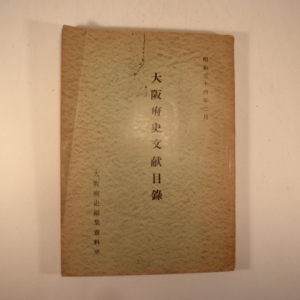 昭和三十四年三月
大阪府史文献目録
大阪府史編集資料室